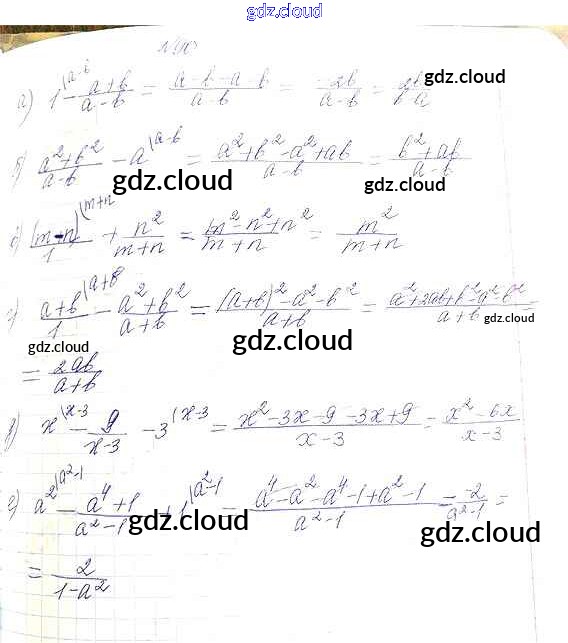 gdz.cloud
а) 1^{(a-b} - \frac{a+b}{a-b} = \frac{a-b-a-b}{a-b} = \frac{-2b}{a-b} = \frac{2b}{b-a}
gdz.cloud
б) \frac{a^2+b^2}{a-b} - a^{(a-b} = \frac{a^2+b^2-a^2+ab}{a-b} = \frac{b^2+ab}{a-b}
gdz.cloud gdz.cloud
\frac{(m-n)}{1}^{(m+n} + \frac{n^2}{m+n} = \frac{m^2-n^2+n^2}{m+n} = \frac{m^2}{m+n}
gdz.cloud
г) \frac{a+b}{1}^{(a+b} - \frac{a^2+b^2}{a+b} = \frac{(a+b)^2-a^2-b^2}{a+b} = \frac{a^2+2ab+b^2-a^2-b^2}{a+b} =
gdz.cloud gdz.cloud gdz.cloud
= \frac{2ab}{a+b}
x^{(x-3} - \frac{9}{x-3} - 3^{(x-3} = \frac{x^2-3x-9-3x+9}{x-3} = \frac{x^2-6x}{x-3}
gdz.cloud gdz.cloud
е) a^{2(a^2-1} - \frac{a^4+1}{a^2-1} + 1^{(a^2-1} = \frac{a^4-a^2-a^4-1+a^2-1}{a^2-1} = \frac{-2}{a^2-1} =
gdz.cloud gdz.cloud
= \frac{2}{1-a^2}